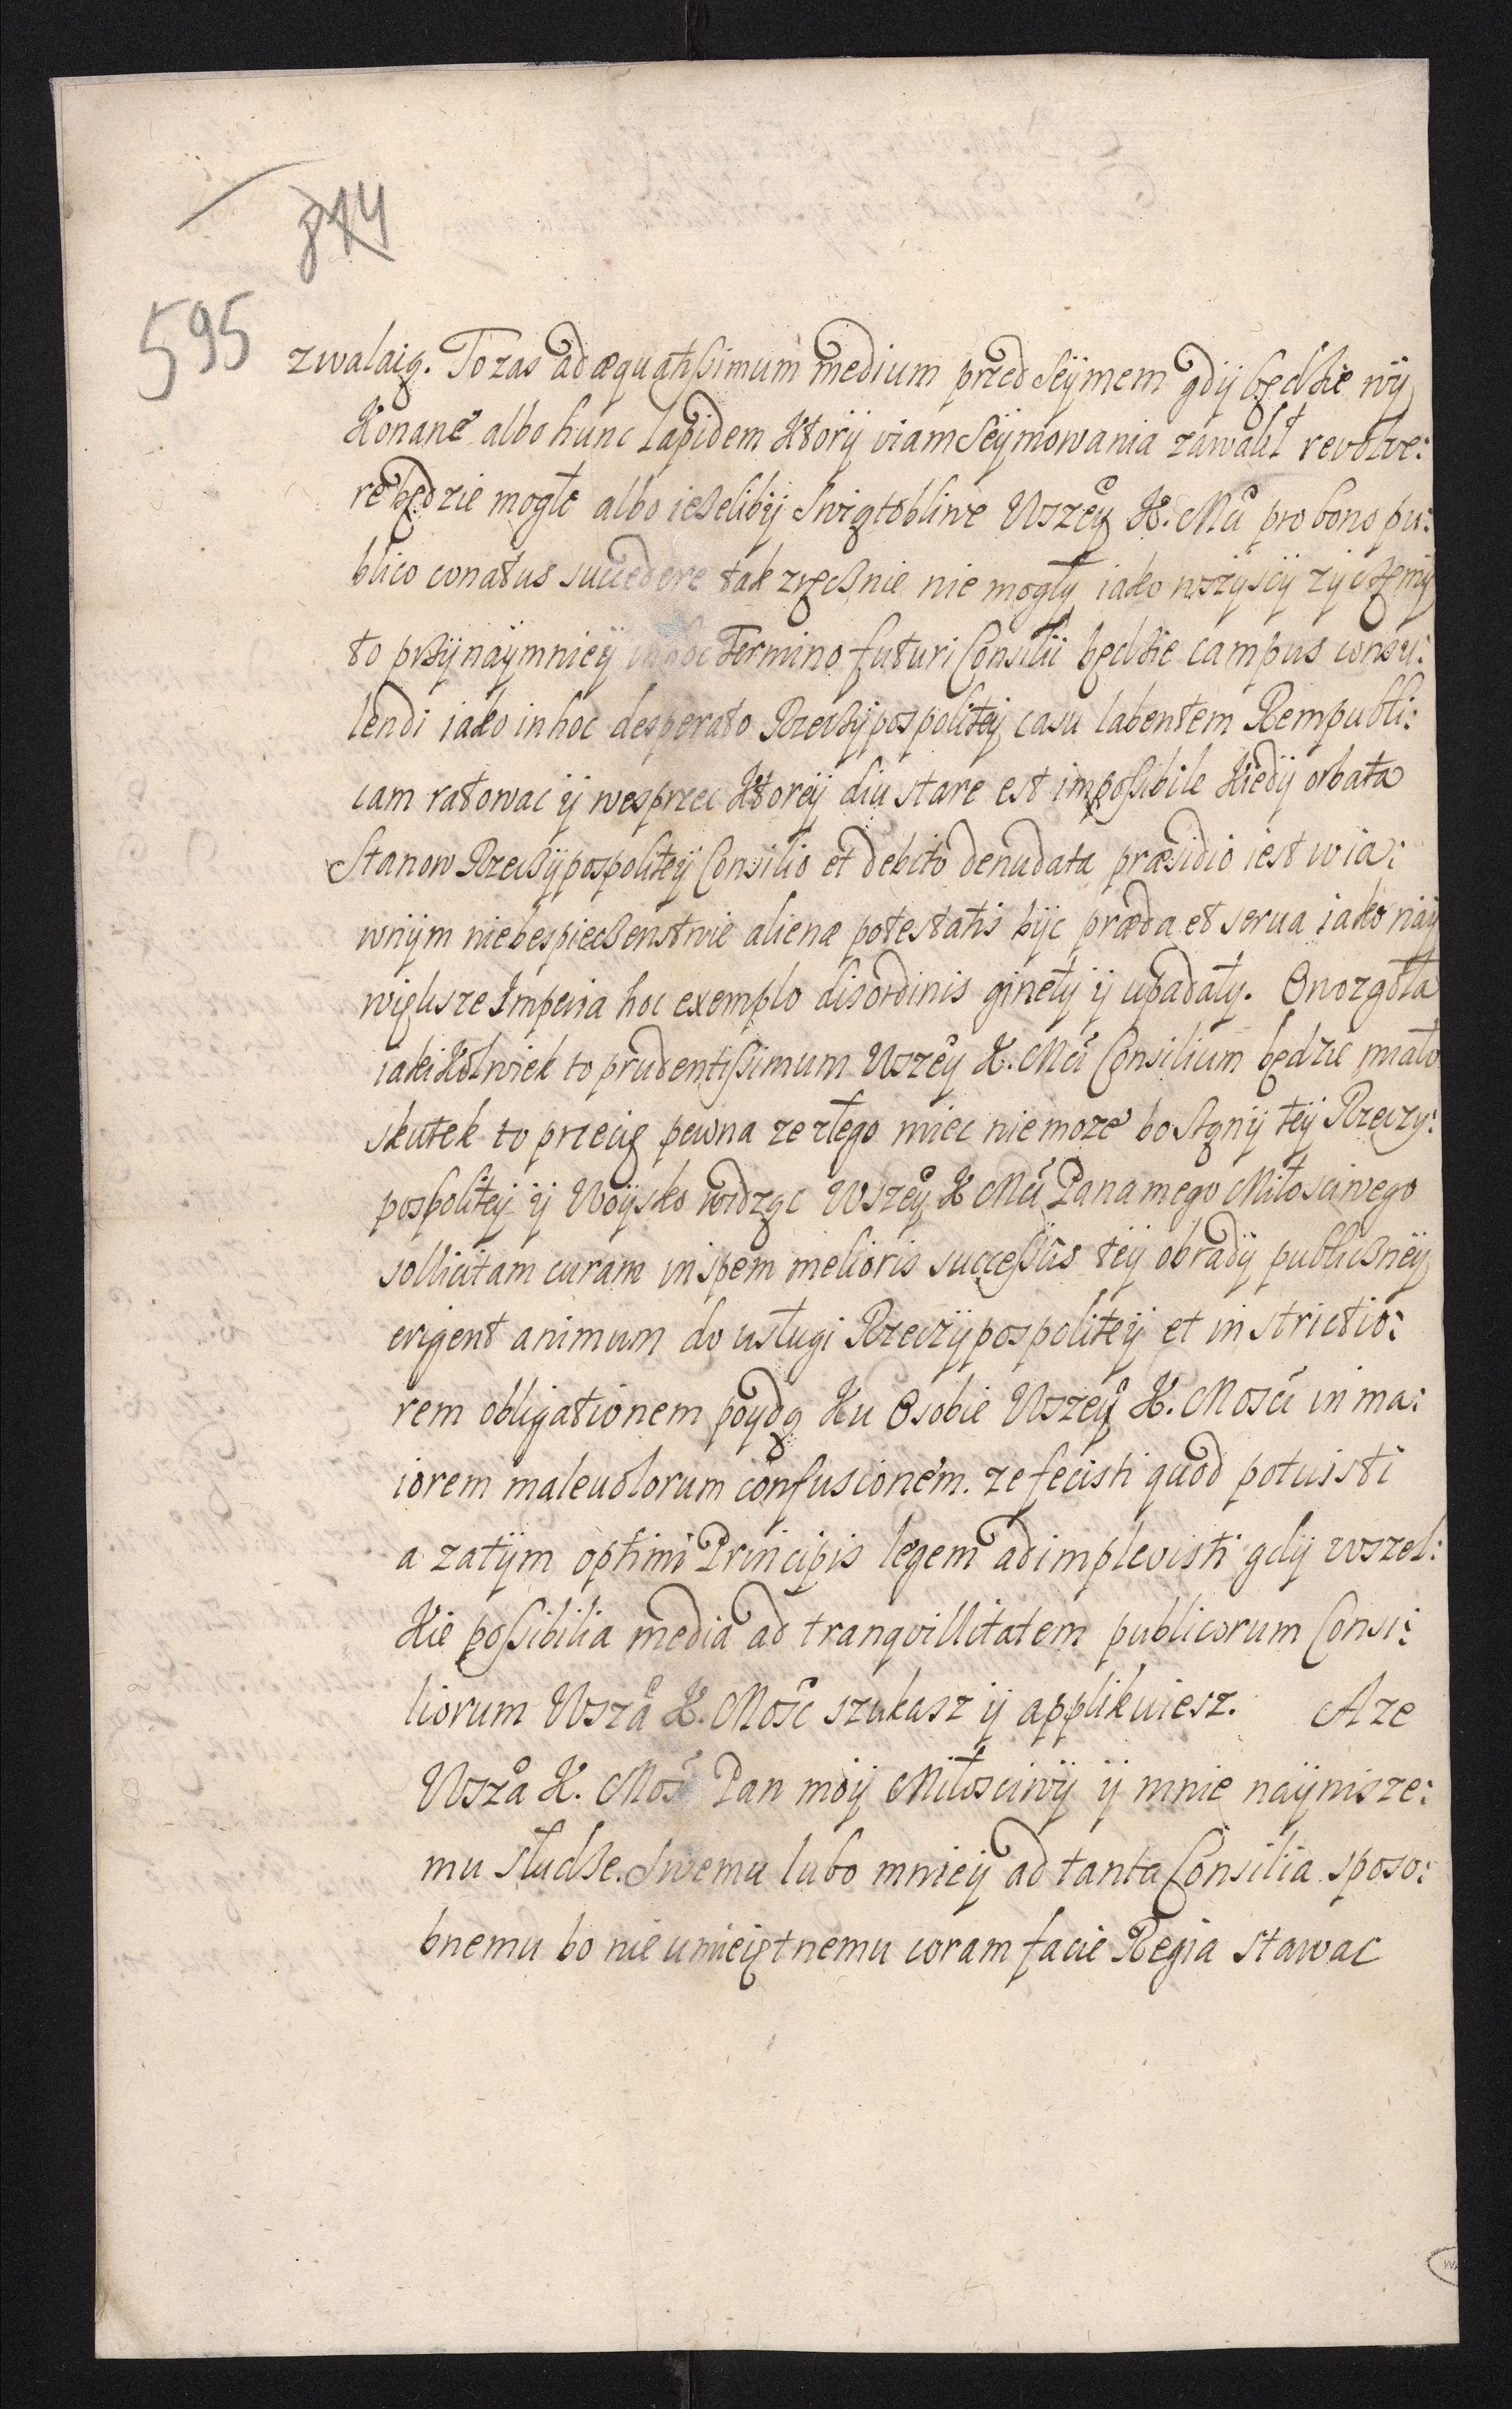 844
595
zwalaią. To zas adæquatissimum medium przed Seÿmem gdÿ będzie wÿ
konane albo hunc lapidem ktorÿ viam Seÿmowania zawalił revolve:
re będzie mogłe albo ieżelibÿ swiątobliwe Wszeÿ K. Mci pro bono pu:
blico conatus succedere tak zręcznie nie mogłÿ iako wszÿscÿ zÿczemÿ
to przÿnaÿmnieÿ in hoc Termino futuri Consilii będzie campus consu:
lendi iako in hoc desperato Rzeczÿpospoliteÿ casu labentem Rempubli:
cam ratowac ÿ wesprzec ktoreÿ diu stare est impossibile kiedÿ orbata
Stanow Rzeczÿpospoliteÿ Consilio et debito denudata præsidio iest w ia:
wnÿm niebespieczenstwie alienæ potestatis bÿc præda et serua iako naÿ
większe Imperia hoc exemplo disordinis ginełÿ ÿ upadałÿ. Onozgoła
iakikolwiek to prudentissimum Wszeÿ K. Mci Consilium będzie miało
skutek to przecię pewna ze złego miec nie moze bo Stanÿ teÿ Rzeczy:
pospoliteÿ ÿ Woÿsko widząc Wszeÿ K Mci Pana mego Miłosciwego
sollicitam curam in spem melioris successûs teÿ obradÿ publiczneÿ
erigent animum do usługi Rzeczÿpospoliteÿ et in strictio:
rem obligationem poydą ku Osobie Wszeÿ K. Mosci in ma:
iorem maleuolorum confusionem. ze fecisti quod potuisti
a zatÿm optimi Principis legem adimplevisti gdÿ wszel:
kie possibilia media ad tranquillitatem publicorum Consi:
liorum Wsza K. Mość szukasz ÿ applikuiesz. A ze
Wsza K. Mość Pan moÿ Miłosciwÿ ÿ mnie naÿnisze:
mu słudze Swemu lubo mnieÿ ad tanta Consilia sposo:
bnemu bo nie umieiętnemu coram facie Regia stawac